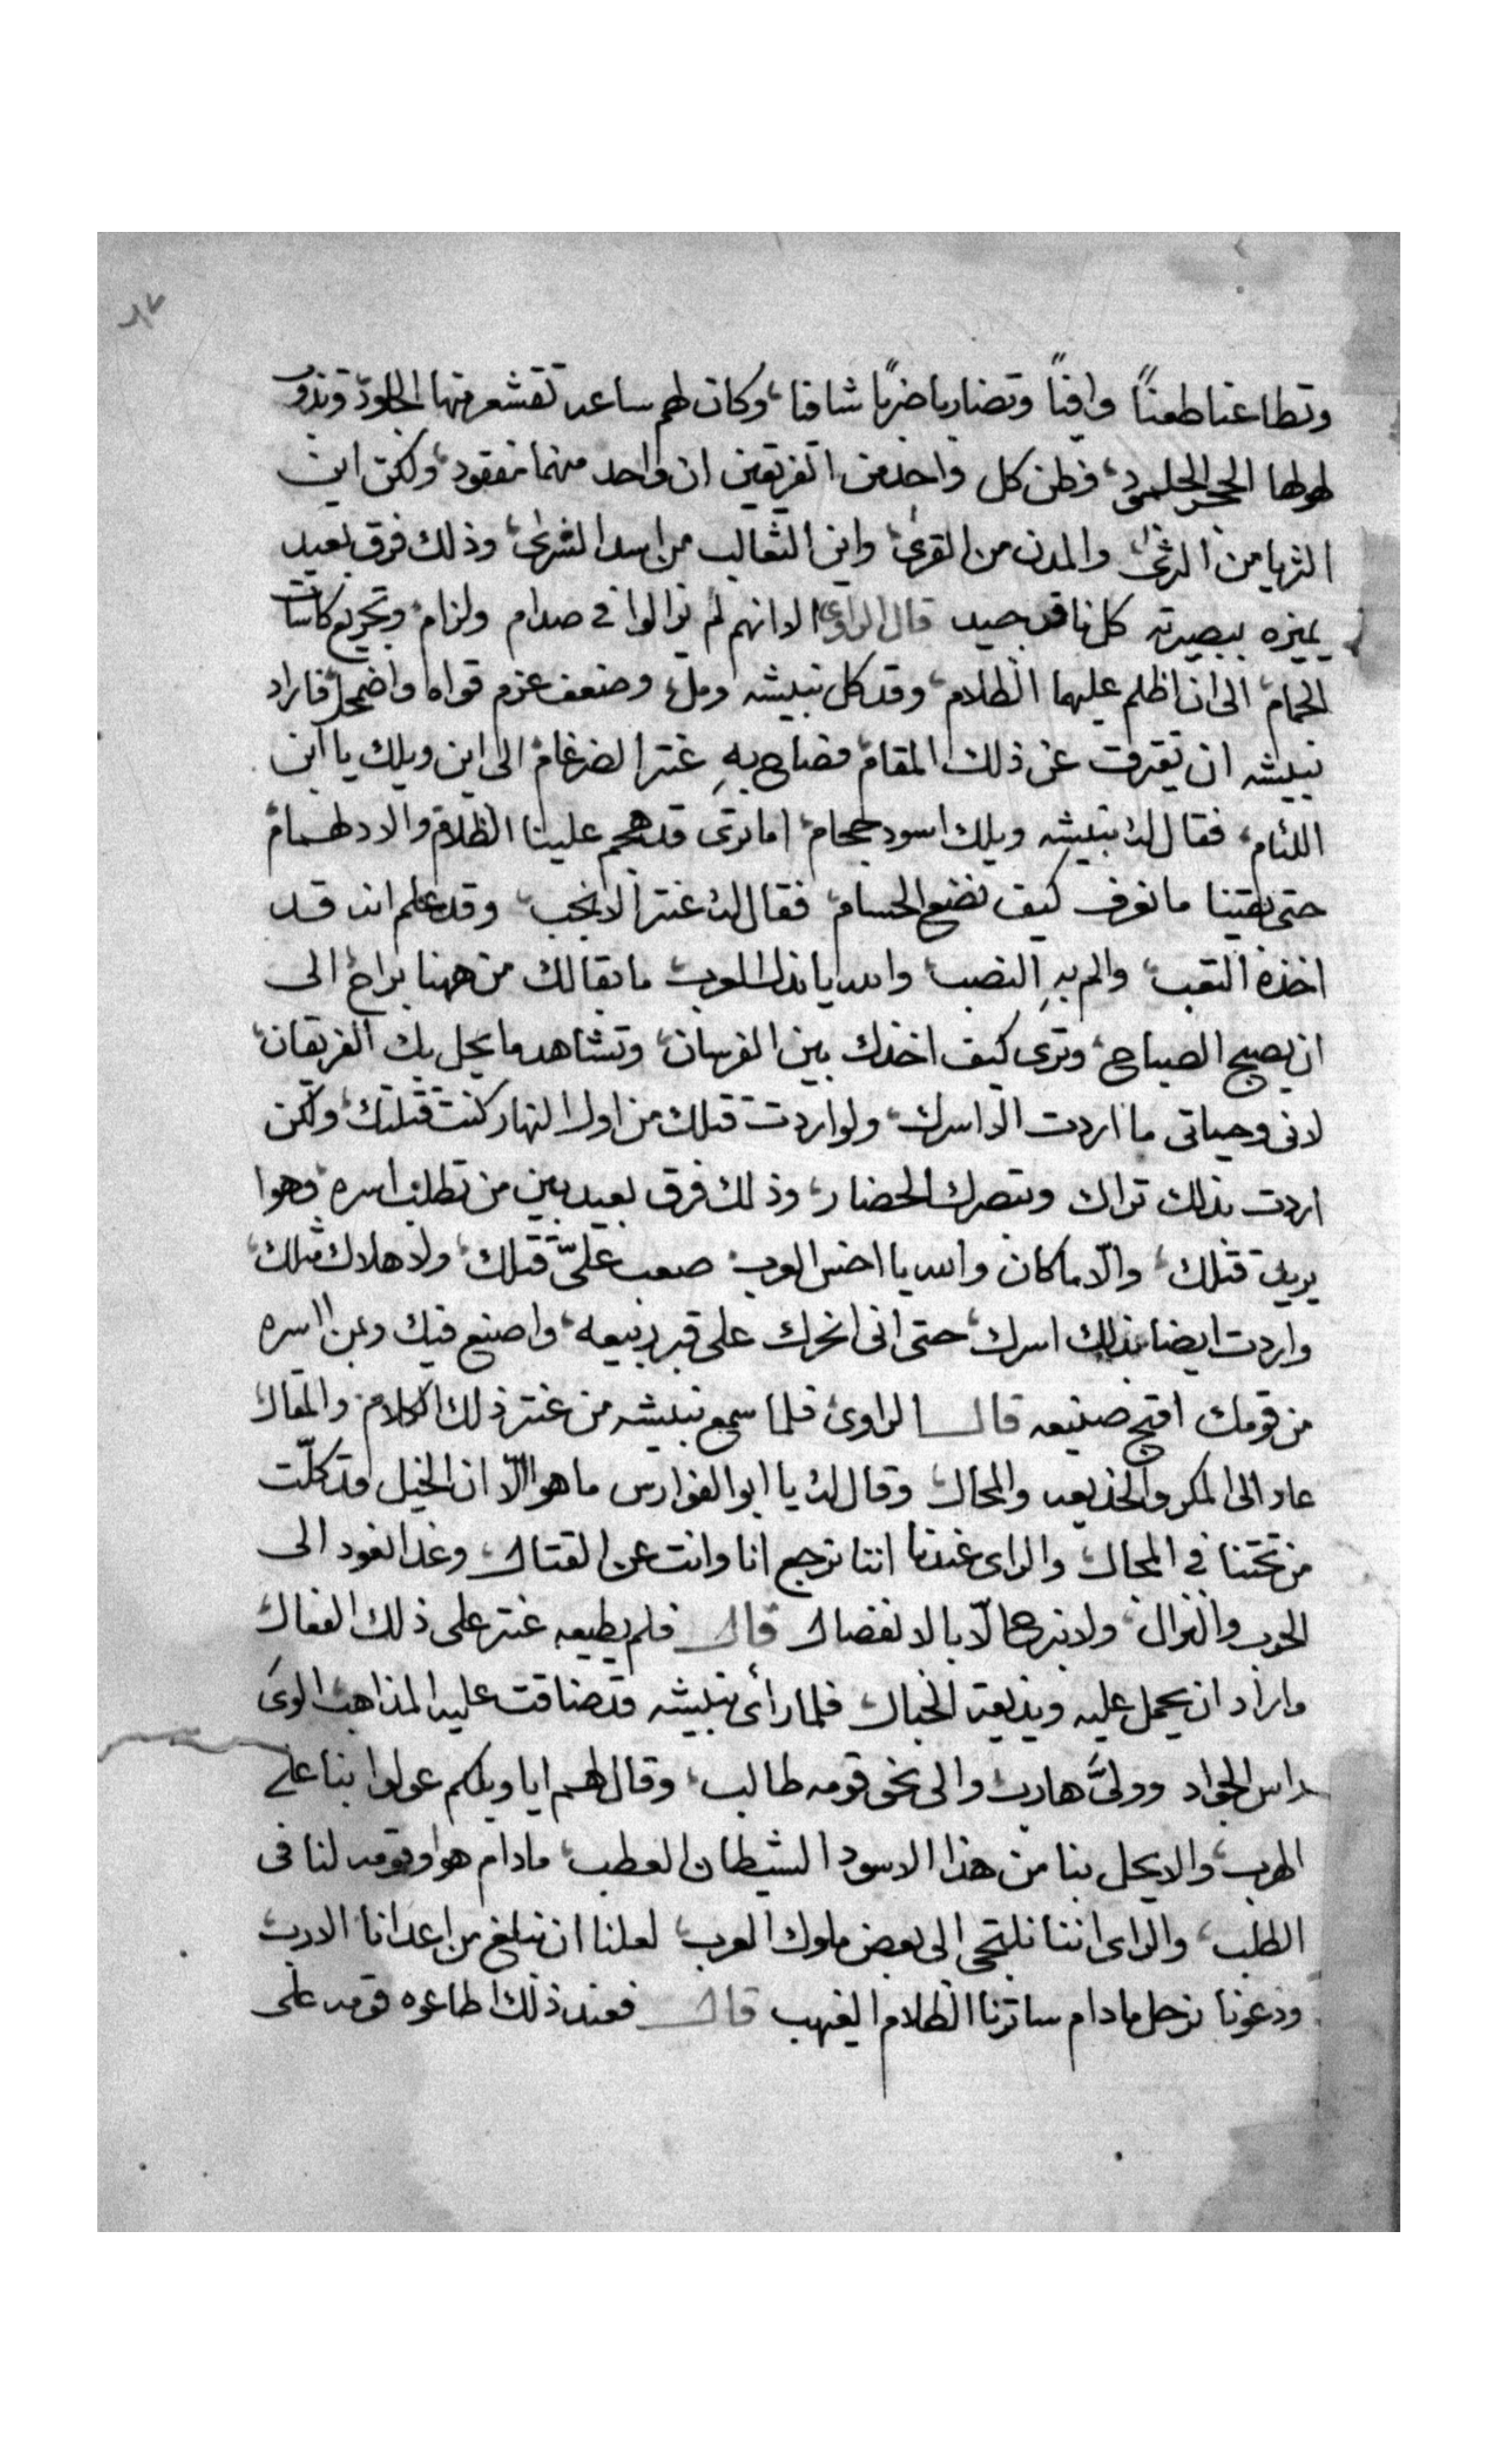 ٨٧
وتطاعنا طعنًا وافيًا وتضاربا ضربًا شافيا، وكان لهم ساعه تقشعر منها الجلود، وتذوب
لهولها الحجر الجلمود، فظن كل واحد من الفريقين ان واحد منهما مفقود، ولكن اين
الثريا من الثرى، والمدن من القرى، واين الثعالب من اسد الشرى، وذلك فرق بعيد
يميزه ببصيرته كل ناقد جيد قال الراوى الا انهم لم يزالوا فى صدام ولزام، وتجريع كاسات
الحمام، الى ان اظلم عليهما الظلام، وقد كل نبيشه ومل، وضعف عزم قواه واضمحل، فاراد
نبيشه ان يفترق عن ذلك المقام، فصاح به عنتر الضرغام، الى اين ويلك يا ابن
اللئام، فقال له نبيشه ويلك اسود حجام، اما ترى قد هجم علينا الظلام والادلهمام
حتى بقينا ما نعرف كيف نضع الحسام، فقال له عنتر الانجب، وقد علم انه قد
اخذه التعب، والم به النصب، والله يا نذل العرب، ما بقا لك من ههنا براح، الى
ان يصبح الصباح، وترى كيف اخذك بين الفرسان، وتشاهد ما يحل بك الفريقان،
لانى وحياتى ما اردت الا اسرك، ولو اردت قتلك من اول النهار كنت قتلتك، ولكن
اردت بذلك تراك وتبصرك الحضار، وذلك فرق بعيد بين من تطلب اسره، وهوا
يريد قتلك، والّا ما كان والله يا اخس العرب، صعب علىّ قتلك، ولا هلاك مثلك،
واردت ايضا بذلك اسرك، حتى انى انحرك على قبر ربيعه، واصنع فيك وبمن اسره
من قومك اقبح صنيعه قال الراوى فلما سمع نبيشه من عنتر ذلك الكلام، والمقال
عاد الى المكر والخديعه والمحال، وقال له يا ابو الفوارس ما هو الّا ان الخيل قد كلّت
من تحتنا فى المجال، والراى عندنا اننا نرجع انا وانت عن القتال، وغدا نعود الى
الحرب والنزال، ولا نبرح الّا بالانفصال قال فلم يطيعه عنتر على ذلك الفعال
واراد ان يحمل عليه ويذيقه الخبال، فلما رأى نبيشه قد ضاقت عليه المذاهب، الوى
راس الجواد وولىّ هارب، والى نحو قومه طالب، وقال لهم ايا ويلكم عولوا بنا على
الهرب، والا يحل بنا من هذا الاسود الشيطان العطب، ما دام هو وقومه لنا فى
الطلب، والراى اننا نلتجى الى بعض ملوك العرب، لعلنا ان نبلغ من اعدانا الارب
ودعونا نرحل ما دام ساترنا الظلام الغيهب قال فعند ذلك اطاعوه قومه على